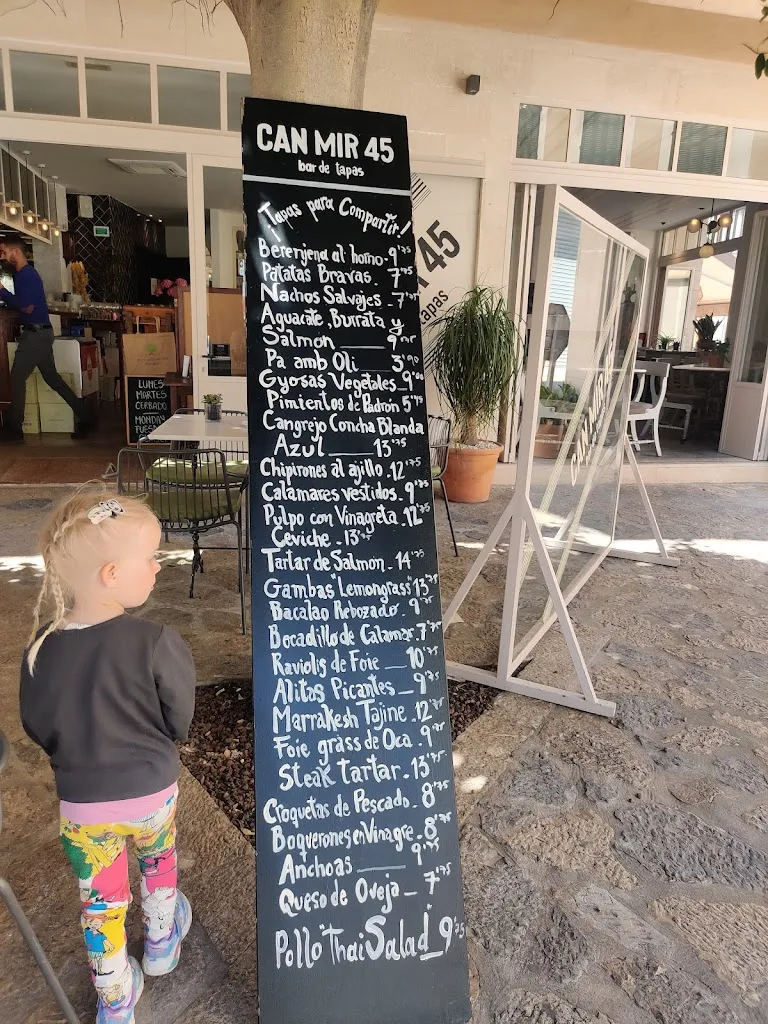 CAN MIR 45
bar de tapas
¡Tapas para Compartir!
Berenjena al horno - 9'75
Patatas Bravas. 7'75
Nachos Salvajes - 7'75
Aguacate, Burrata y
Salmon 9'75
Pa amb Oli 3'90
Gyosas Vegetales 9'00
Pimientos de Padrón 5'75
Cangrejo Concha Blanda
Azul 13'75
Chipirones al ajillo. 12'75
Calamares vestidos. 9'75
Pulpo con Vinagreta. 12'75
Ceviche. 13'75
Tartar de Salmon. 14'75
Gambas "Lemongrass" 13'75
Bacalao Rebozado. 9'75
Bocadillo de Calamar. 7'75
Raviolis de Foie 10'75
Alitas Picantes 9'75
Marrakesh Tajine. 12'75
Foie grass de Oca. 9'75
Steak tartar. 13'75
Croquetas de Pescado. 8'75
Boquerones en Vinagre. 8'75
Anchoas 9'75
Queso de Oveja 7'75
Pollo "Thai Salad" 9'75
R 45
tapas
LUNES
MARTES
CERRADO
MONDAY